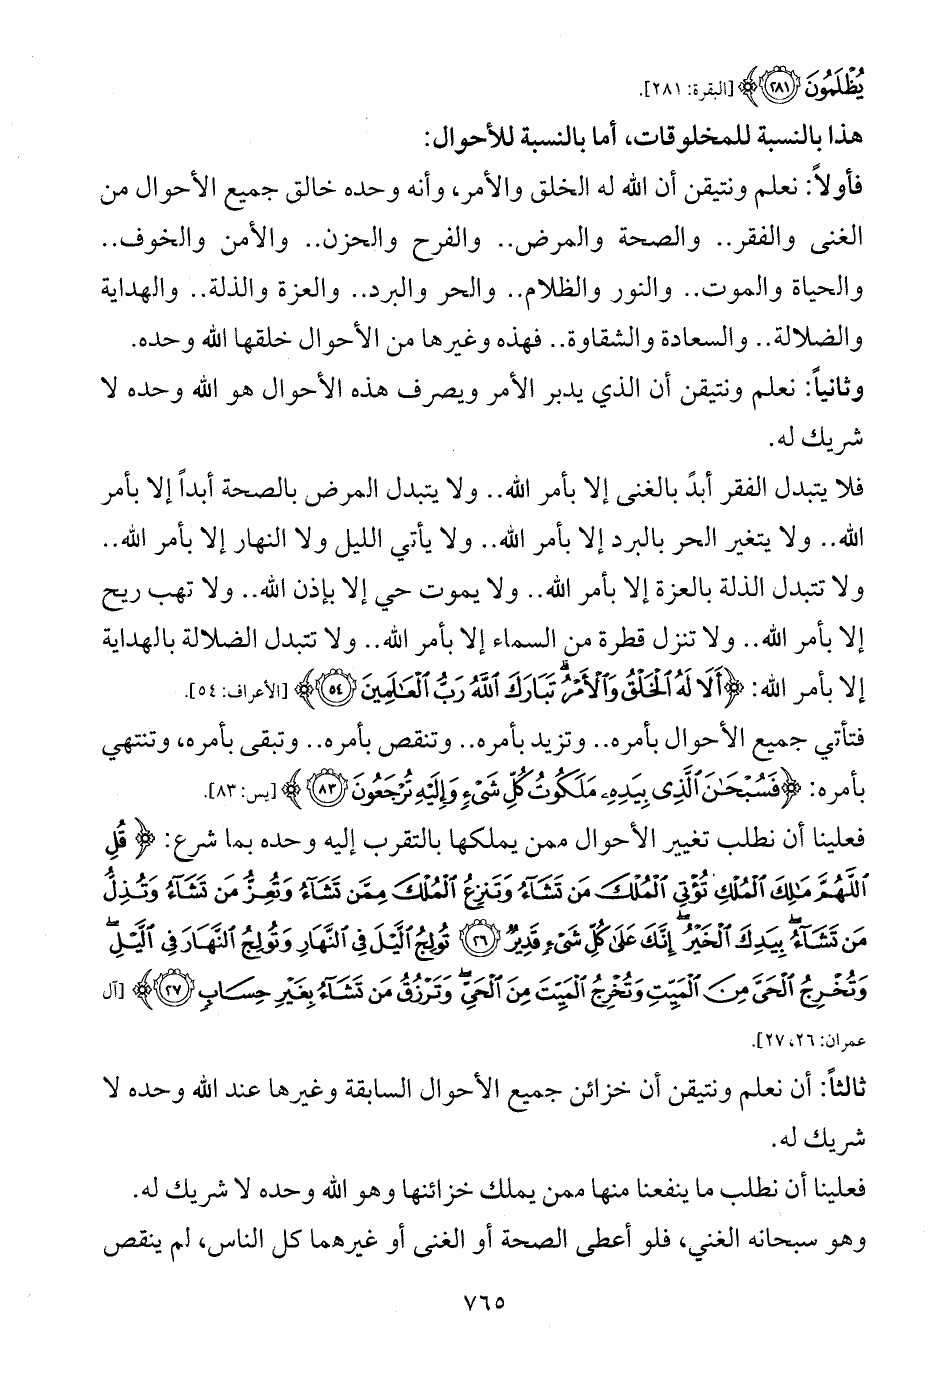 يُظْلَمُونَ ﴿٢٨١﴾﴾ [البقرة: ٢٨١].
هذا بالنسبة للمخلوقات، أما بالنسبة للأحوال:
فأولاً: نعلم ونتيقن أن الله له الخلق والأمر، وأنه وحده خالق جميع الأحوال من
الغنى والفقر.. والصحة والمرض.. والفرح والحزن.. والأمن والخوف..
والحياة والموت.. والنور والظلام.. والحر والبرد.. والعزة والذلة.. والهداية
والضلالة.. والسعادة والشقاوة.. فهذه وغيرها من الأحوال خلقها الله وحده.
وثانياً: نعلم ونتيقن أن الذي يدبر الأمر ويصرف هذه الأحوال هو الله وحده لا
شريك له.
فلا يتبدل الفقر أبدً بالغنى إلا بأمر الله.. ولا يتبدل المرض بالصحة أبداً إلا بأمر
الله.. ولا يتغير الحر بالبرد إلا بأمر الله.. ولا يأتي الليل ولا النهار إلا بأمر الله..
ولا تتبدل الذلة بالعزة إلا بأمر الله.. ولا يموت حي إلا بإذن الله.. ولا تهب ريح
إلا بأمر الله.. ولا تنزل قطرة من السماء إلا بأمر الله.. ولا تتبدل الضلالة بالهداية
إلا بأمر الله: ﴿أَلَا لَهُ ٱلْخَلْقُ وَٱلْأَمْرُ ۗ تَبَارَكَ ٱللَّهُ رَبُّ ٱلْعَـٰلَمِينَ ﴿٥٤﴾﴾ [الأعراف: ٥٤].
فتأتي جميع الأحوال بأمره.. وتزيد بأمره.. وتنقص بأمره.. وتبقى بأمره، وتنتهي
بأمره: ﴿فَسُبْحَـٰنَ ٱلَّذِى بِيَدِهِۦ مَلَكُوتُ كُلِّ شَىْءٍ وَإِلَيْهِ تُرْجَعُونَ ﴿٨٣﴾﴾ [يس: ٨٣].
فعلينا أن نطلب تغيير الأحوال ممن يملكها بالتقرب إليه وحده بما شرع: ﴿قُلِ
ٱللَّهُمَّ مَـٰلِكَ ٱلْمُلْكِ تُؤْتِى ٱلْمُلْكَ مَن تَشَآءُ وَتَنزِعُ ٱلْمُلْكَ مِمَّن تَشَآءُ وَتُعِزُّ مَن تَشَآءُ وَتُذِلُّ
مَن تَشَآءُ ۖ بِيَدِكَ ٱلْخَيْرُ ۖ إِنَّكَ عَلَىٰ كُلِّ شَىْءٍ قَدِيرٌ ﴿٢٦﴾ تُولِجُ ٱلَّيْلَ فِى ٱلنَّهَارِ وَتُولِجُ ٱلنَّهَارَ فِى ٱلَّيْلِ ۖ
وَتُخْرِجُ ٱلْحَىَّ مِنَ ٱلْمَيِّتِ وَتُخْرِجُ ٱلْمَيِّتَ مِنَ ٱلْحَىِّ ۖ وَتَرْزُقُ مَن تَشَآءُ بِغَيْرِ حِسَابٍ ﴿٢٧﴾﴾ [آل
عمران: ٢٦، ٢٧].
ثالثاً: أن نعلم ونتيقن أن خزائن جميع الأحوال السابقة وغيرها عند الله وحده لا
شريك له.
فعلينا أن نطلب ما ينفعنا منها ممن يملك خزائنها وهو الله وحده لا شريك له.
وهو سبحانه الغني، فلو أعطى الصحة أو الغنى أو غيرهما كل الناس، لم ينقص
٧٦٥